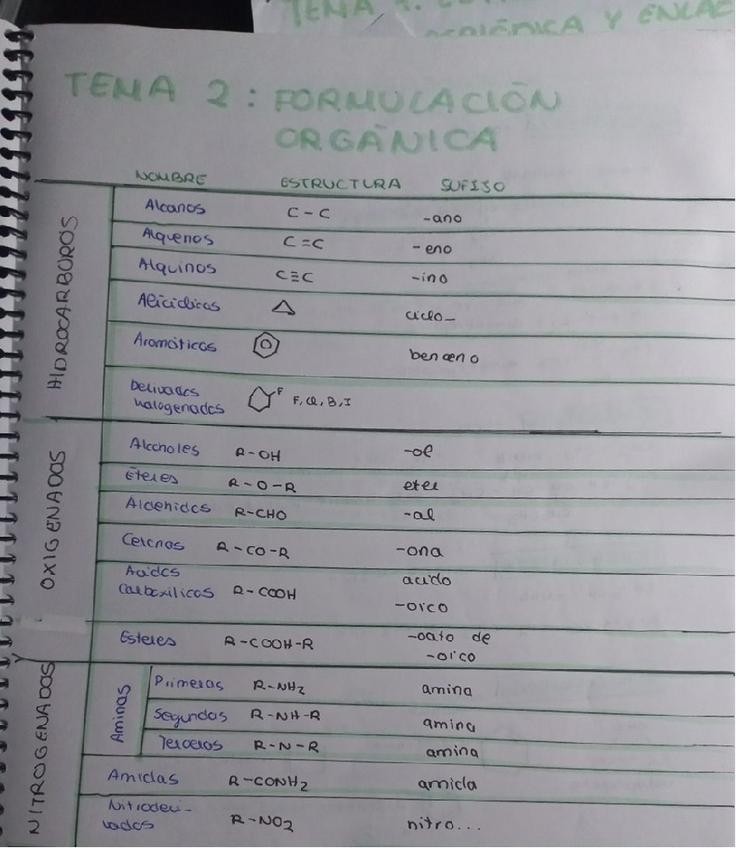 TEMA 1:
Y ENLAC
TEMA 2: FORMULACIÓN
ORGÁNICA
NOMBRE ESTRUCTURA SUFISO
HIDROCARBUROS
Alcanos C-C -ano
Alquenos C=C -eno
Alquinos C≡C -ino
Aliciclicos ciclo_
Aromáticos benceno
Derivados
halogenados F F, Cl, B, I
OXIGENADOS
Alcoholes R-OH -ol
Éteres R-O-R eter
Aldehidos R-CHO -al
Cetonas R-CO-R -ona
Acidos acido
Carboxilicos R-COOH -oico
Esteres R-COOH-R -oato de
-oico
NITROGENADOS
Aminas
Primeras R-NH₂ amina
Segundas R-NH-R amina
Terceros R-N-R amina
Amidas R-CONH₂ amida
Nitroderi-
vados R-NO₂ nitro...